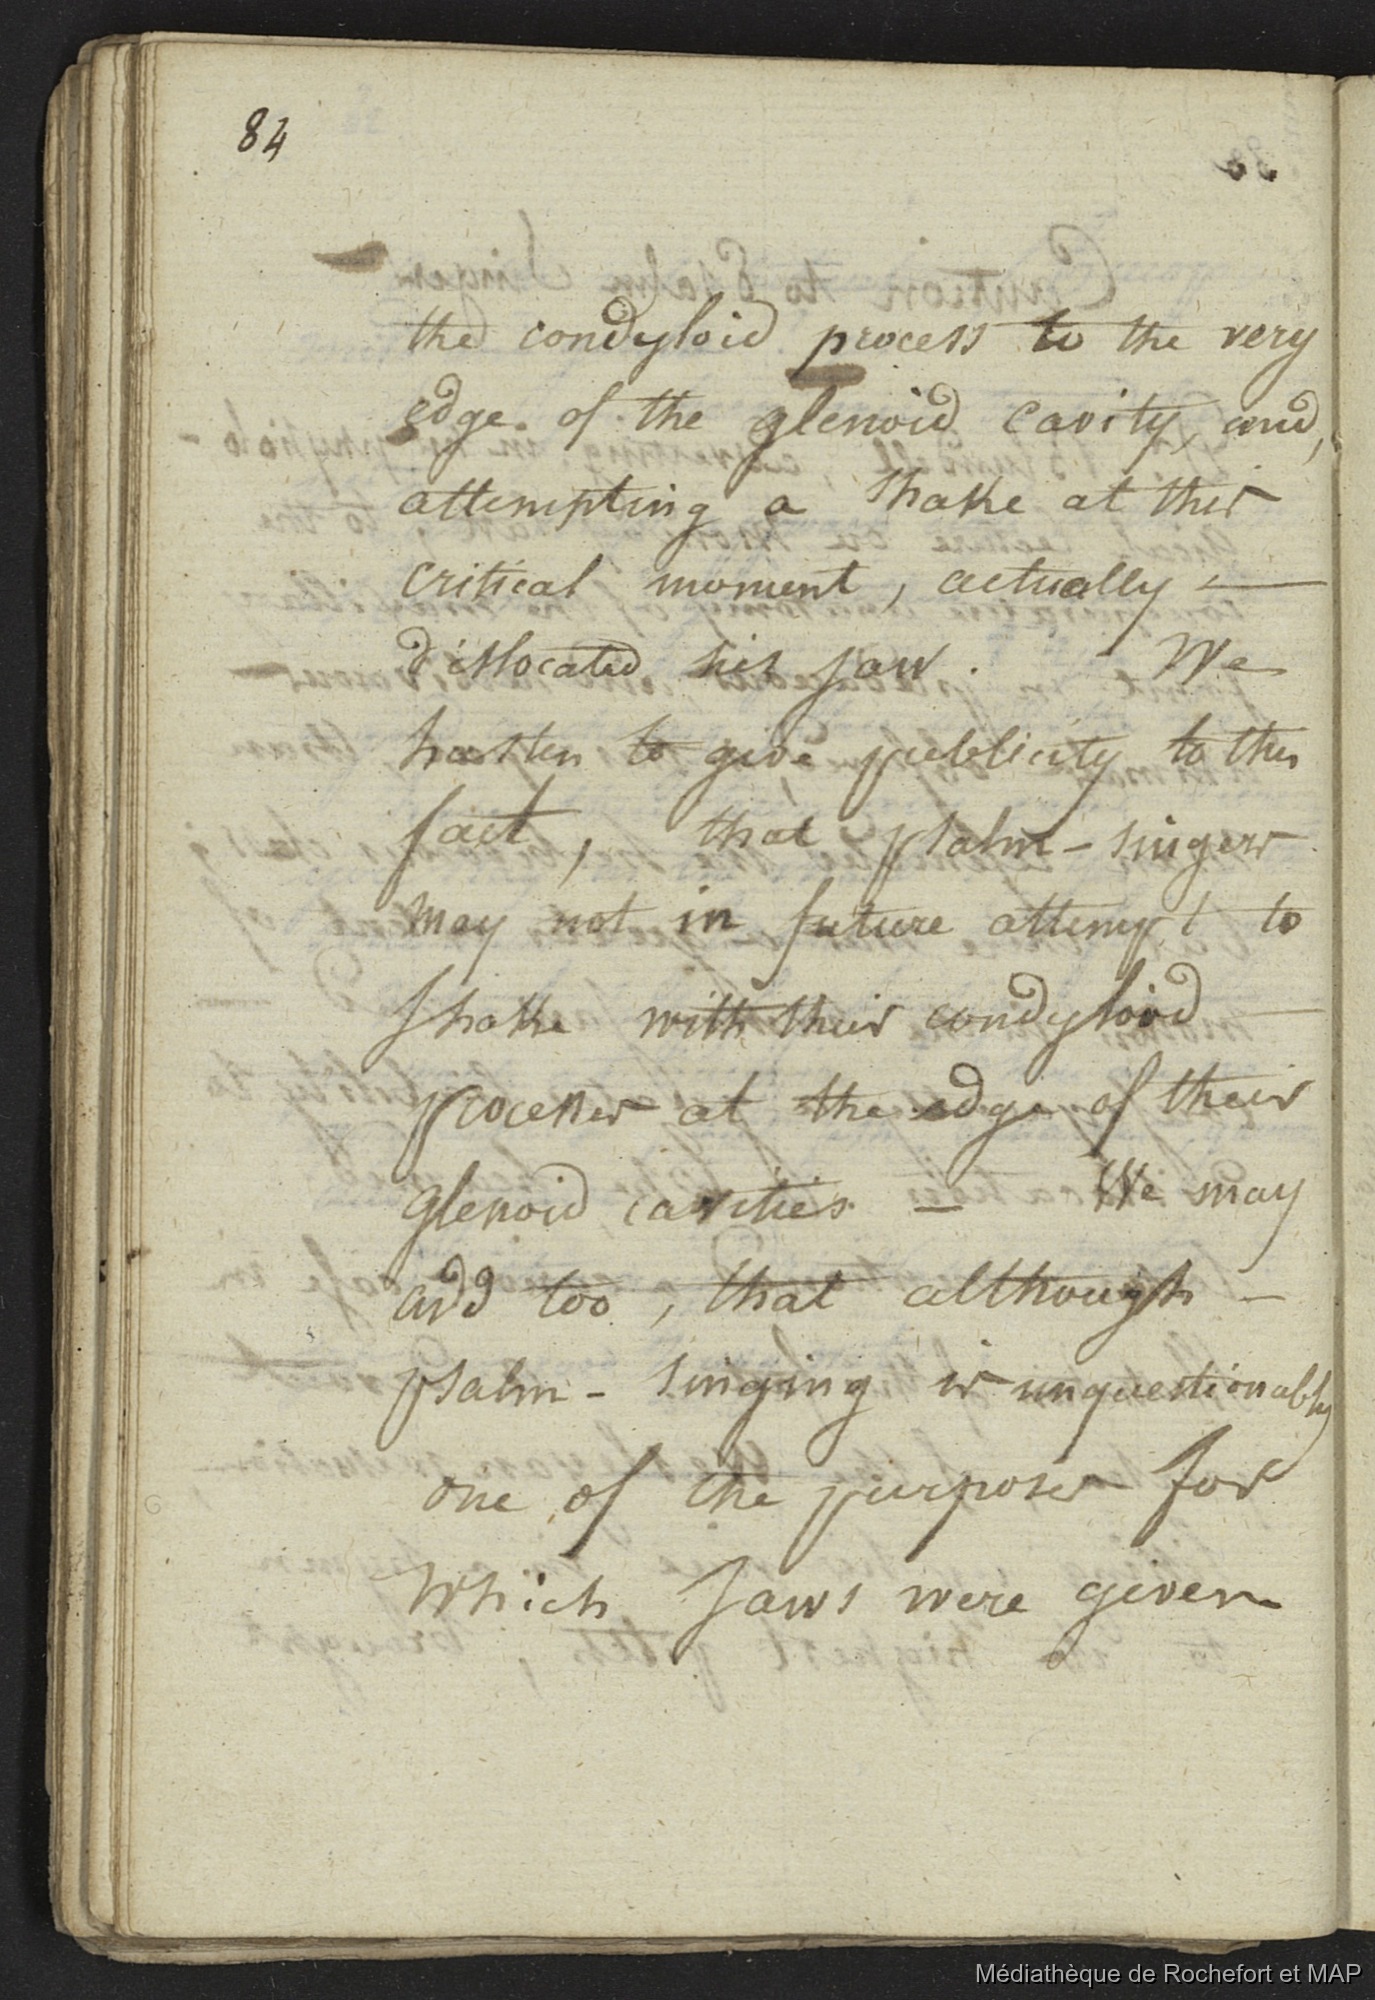 84
the condyloid process to the very
edge of the glenoid cavity, and,
attempting a shake at this
critical moment, actually —
dislocated his jaw. We
hasten to give publicity to this
fact, that psalm-singers
may not in future attempt to
shake with their condyloid —
processes at the edge of their
glenoid cavities — We may
add too, that although —
psalm-singing is unquestionably
one of the purposes for
which Jaws were given
Médiathèque de Rochefort et MAP